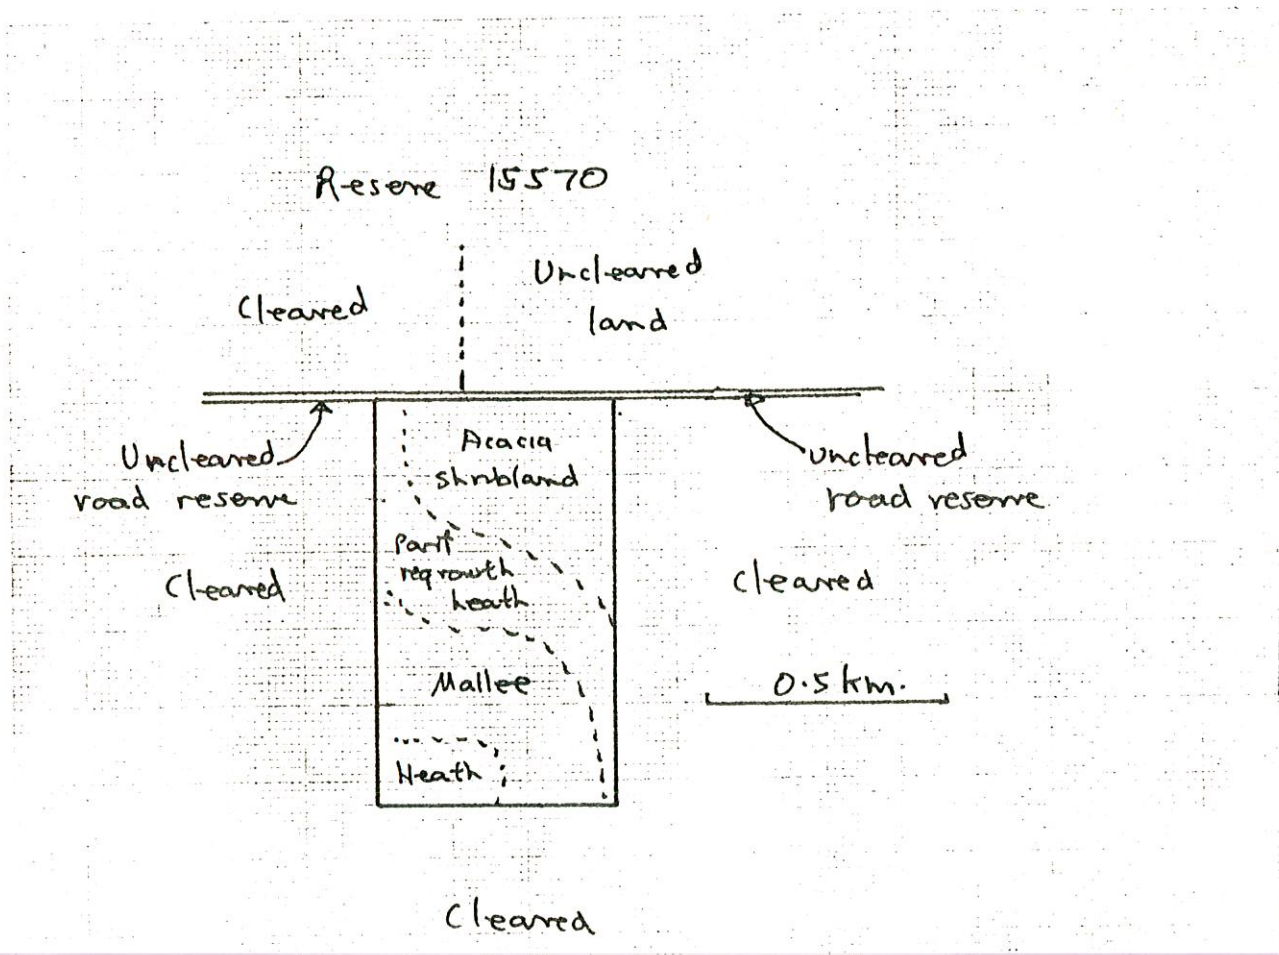 Reserve 15570
Cleared
Uncleared
land
Uncleared
road reserve
Acacia
shrubland
uncleared
road reserve
Part
regrowth
heath
Cleared
Cleared
Mallee
0.5 km.
Heath
Cleared